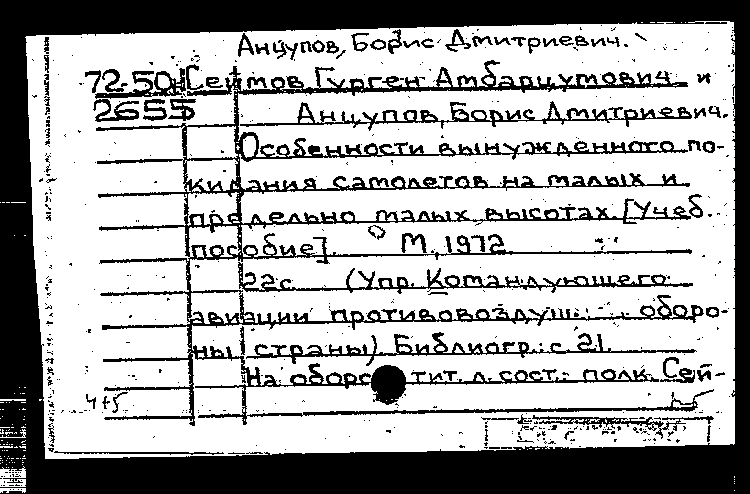 Анцупов, Борис Дмитриевич.
72-50 Сейтов, Гурген Амбарцумович и
2655 Анцупов, Борис Дмитриевич.
Особенности вынужденного по-
кидания самолетов на малых и
предельно малых высотах. [Учеб.
пособие]. М., 1972
22с. (Упр. Командующего
авиации противовоздуш. оборо-
ны страны). Библиогр.: с. 21.
На оборо тит. л. сост.: полк. Сей-
4+5